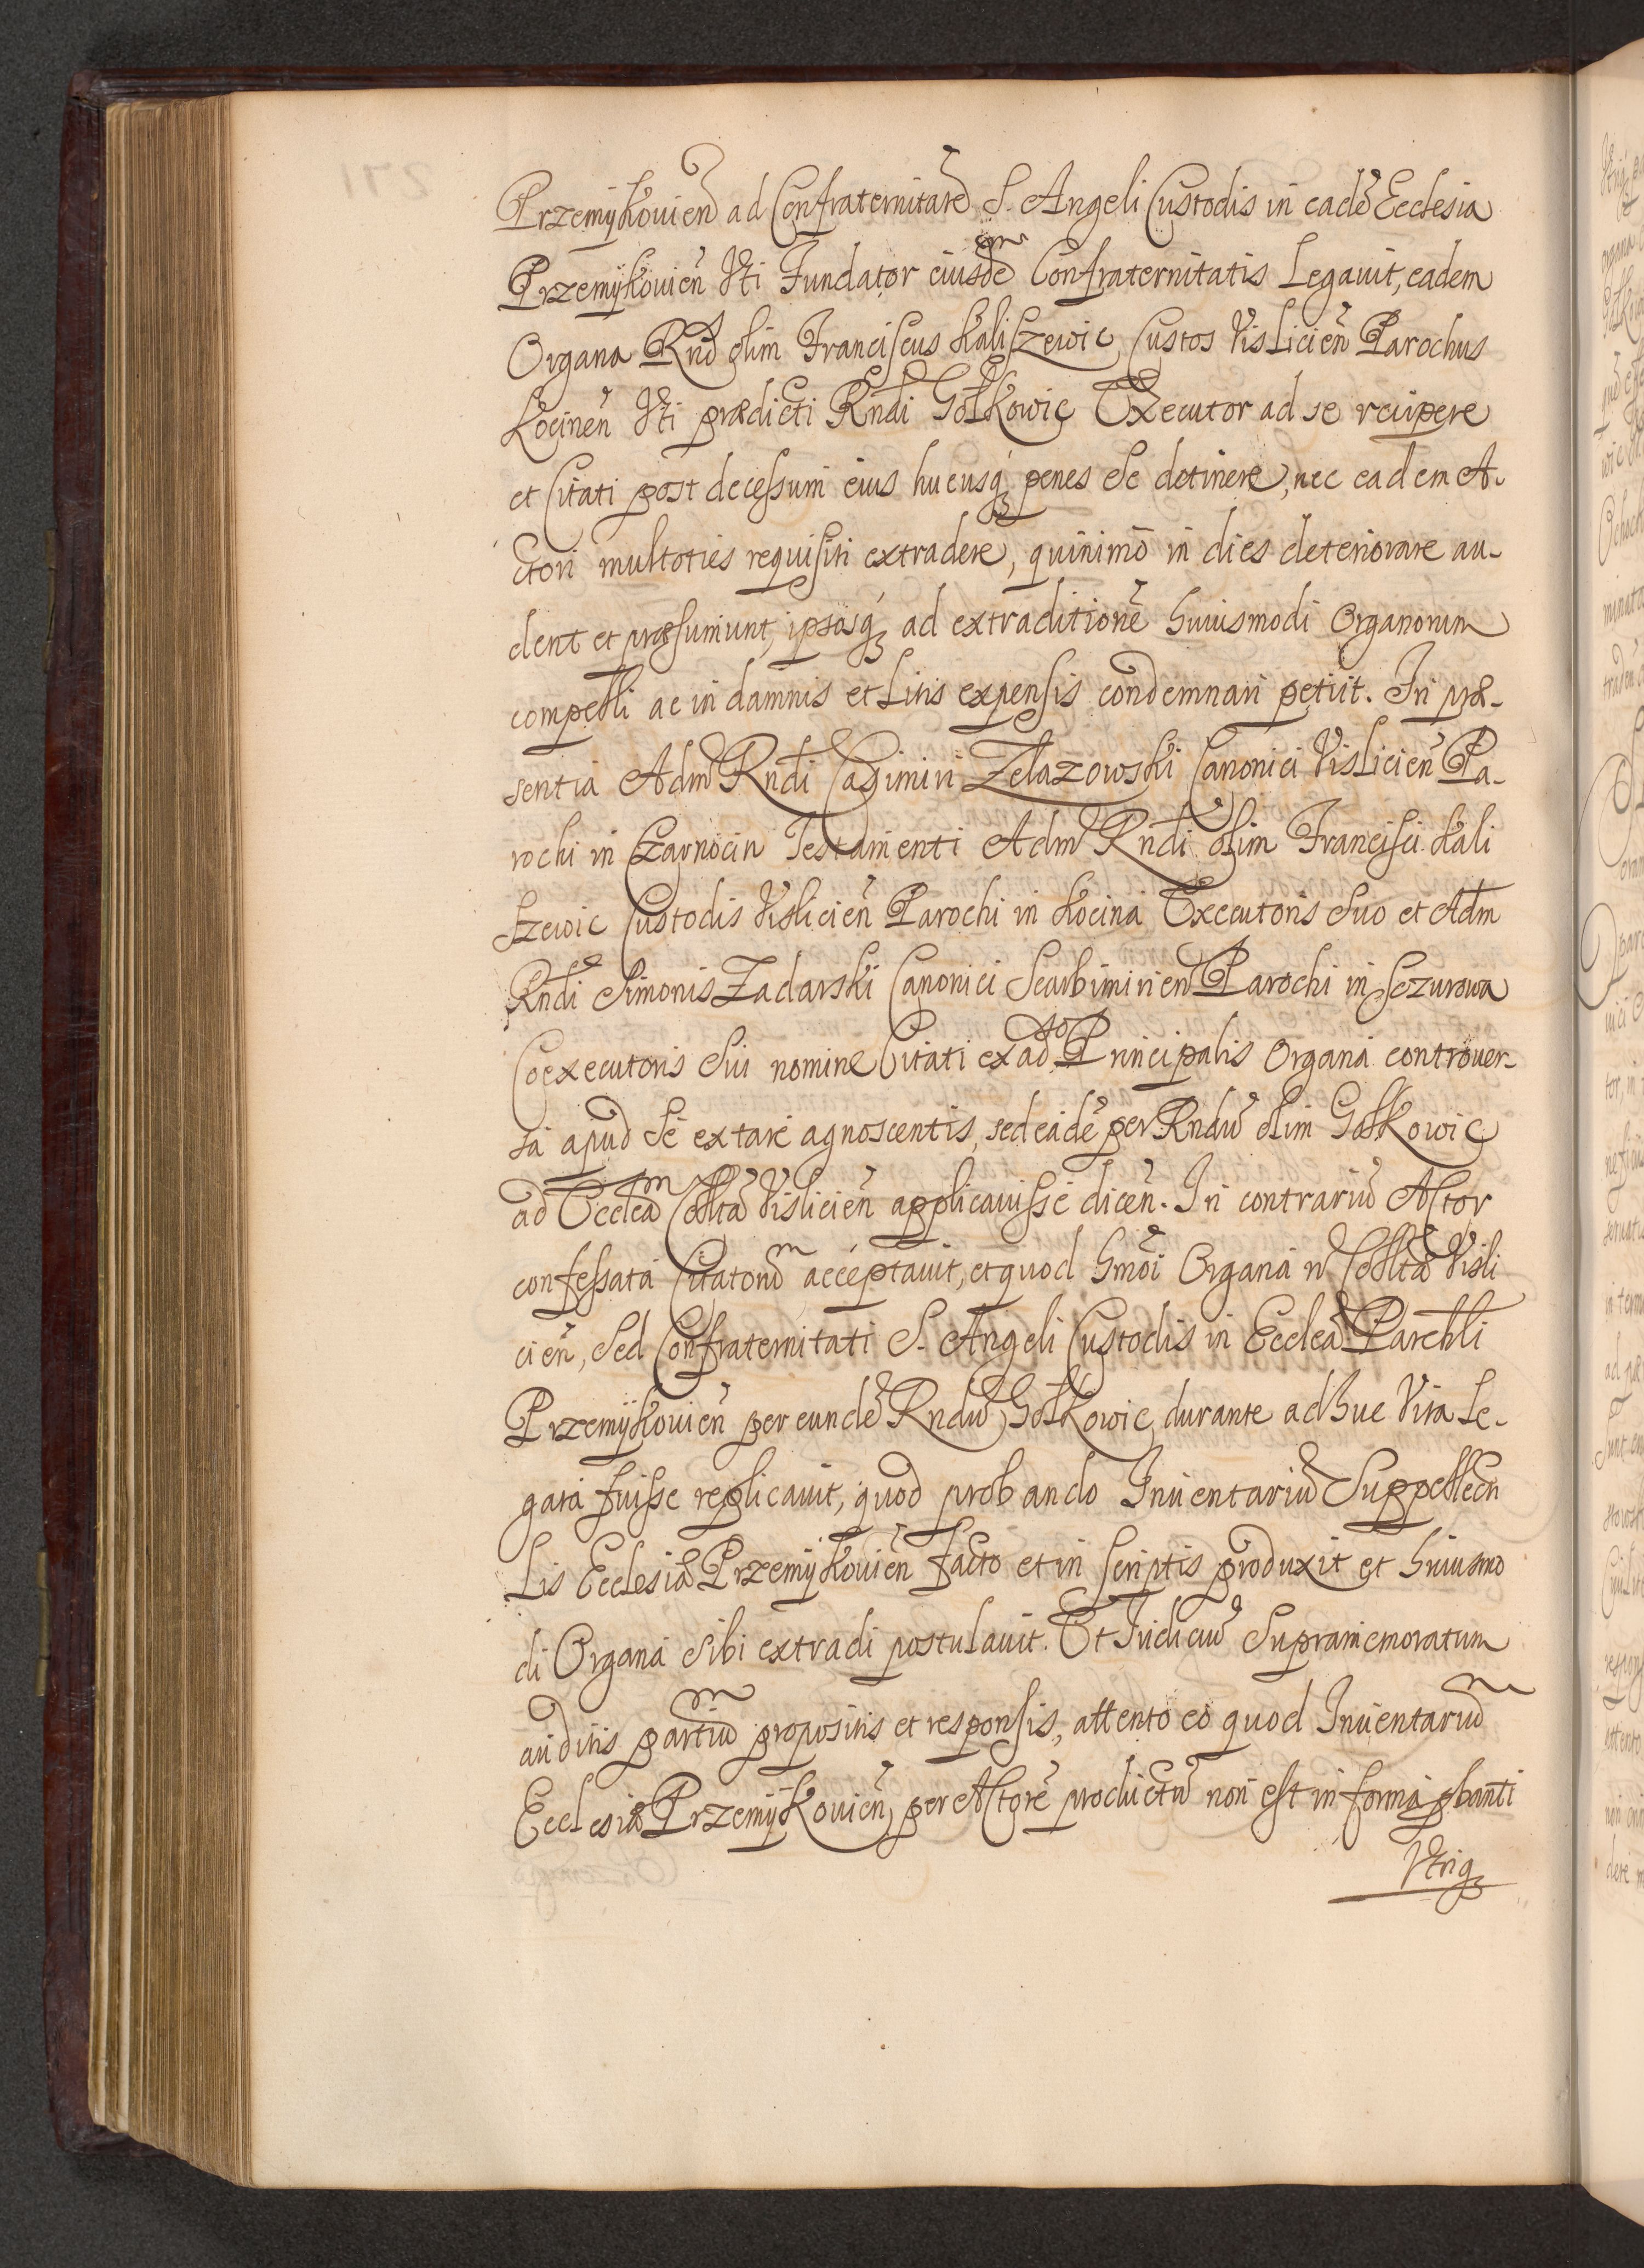 Przemijkouien̄ ad Confraternitatē S. Angeli Custodis in eadē Ecclesia
Przemijkouien̄ Uti Fundator eiusdē Confraternitatis Legauit, eadem
Organa Rnd olim Franciscus Kaliszewic Custos Vislicien̄ Parochus
Kocinen̄ Uti prædicti Rndi Gołkowic Executor ad se recipere
et Citati post decessum eius hucusq; penes Se detinere, nec eadem A-
ctori multoties requisiti extradere, quinimo in dies deteriorare au-
dent et præsumunt, ipsosq; ad extraditionē huiusmodi Organorum
compelli ac in damnis et Litis expensis condemnari petiit. In præ-
sentia Adm Rndi Casimiri Zelazowski Canonici Vislicien̄ Pa-
rochi in Czarnocin Testamenti Adm Rndi olim Francisci Kali
szewic Custodis Vislicien̄ Parochi in Kocina Executoris Suo et Adm
Rndi Simonis Zadarski Canonici Scarbimirien̄ Parochi in Szzurowa
Coexecutoris Sui nomine Citati ex adso Principalis Organa controuer-
sa apud Se extare agnoscentis, sed eadē per Rndū olim Gołkowic
ad Eccleām Collītā Vislicien̄ applicauisse dicen̄. In contrariū Actor
confessata Citatorū acceptauit, et quod hmōi Organa n̄ Collītæ Visli
cien̄, Sed Confraternitati S. Angeli Custodis in Ecclēa Parchlī
Przemijkouien̄ per eundē Rndū Gołkowic durante adhuc Vita Le-
gata fuisse replicauit, quod probando Inuentariū Suppellecti
Lis Ecclesiæ Przemijkouien̄ facto et in scriptis produxit et huiusmo
di Organa Sibi extradi postulauit. Et Iudiciū Supramemoratum
auditis partiū propositis et responsis, attento eo quod Inuentariū
Ecclesiæ Przemijkouien̄ per Actorē productū non est in forma pbanti
Utiq;